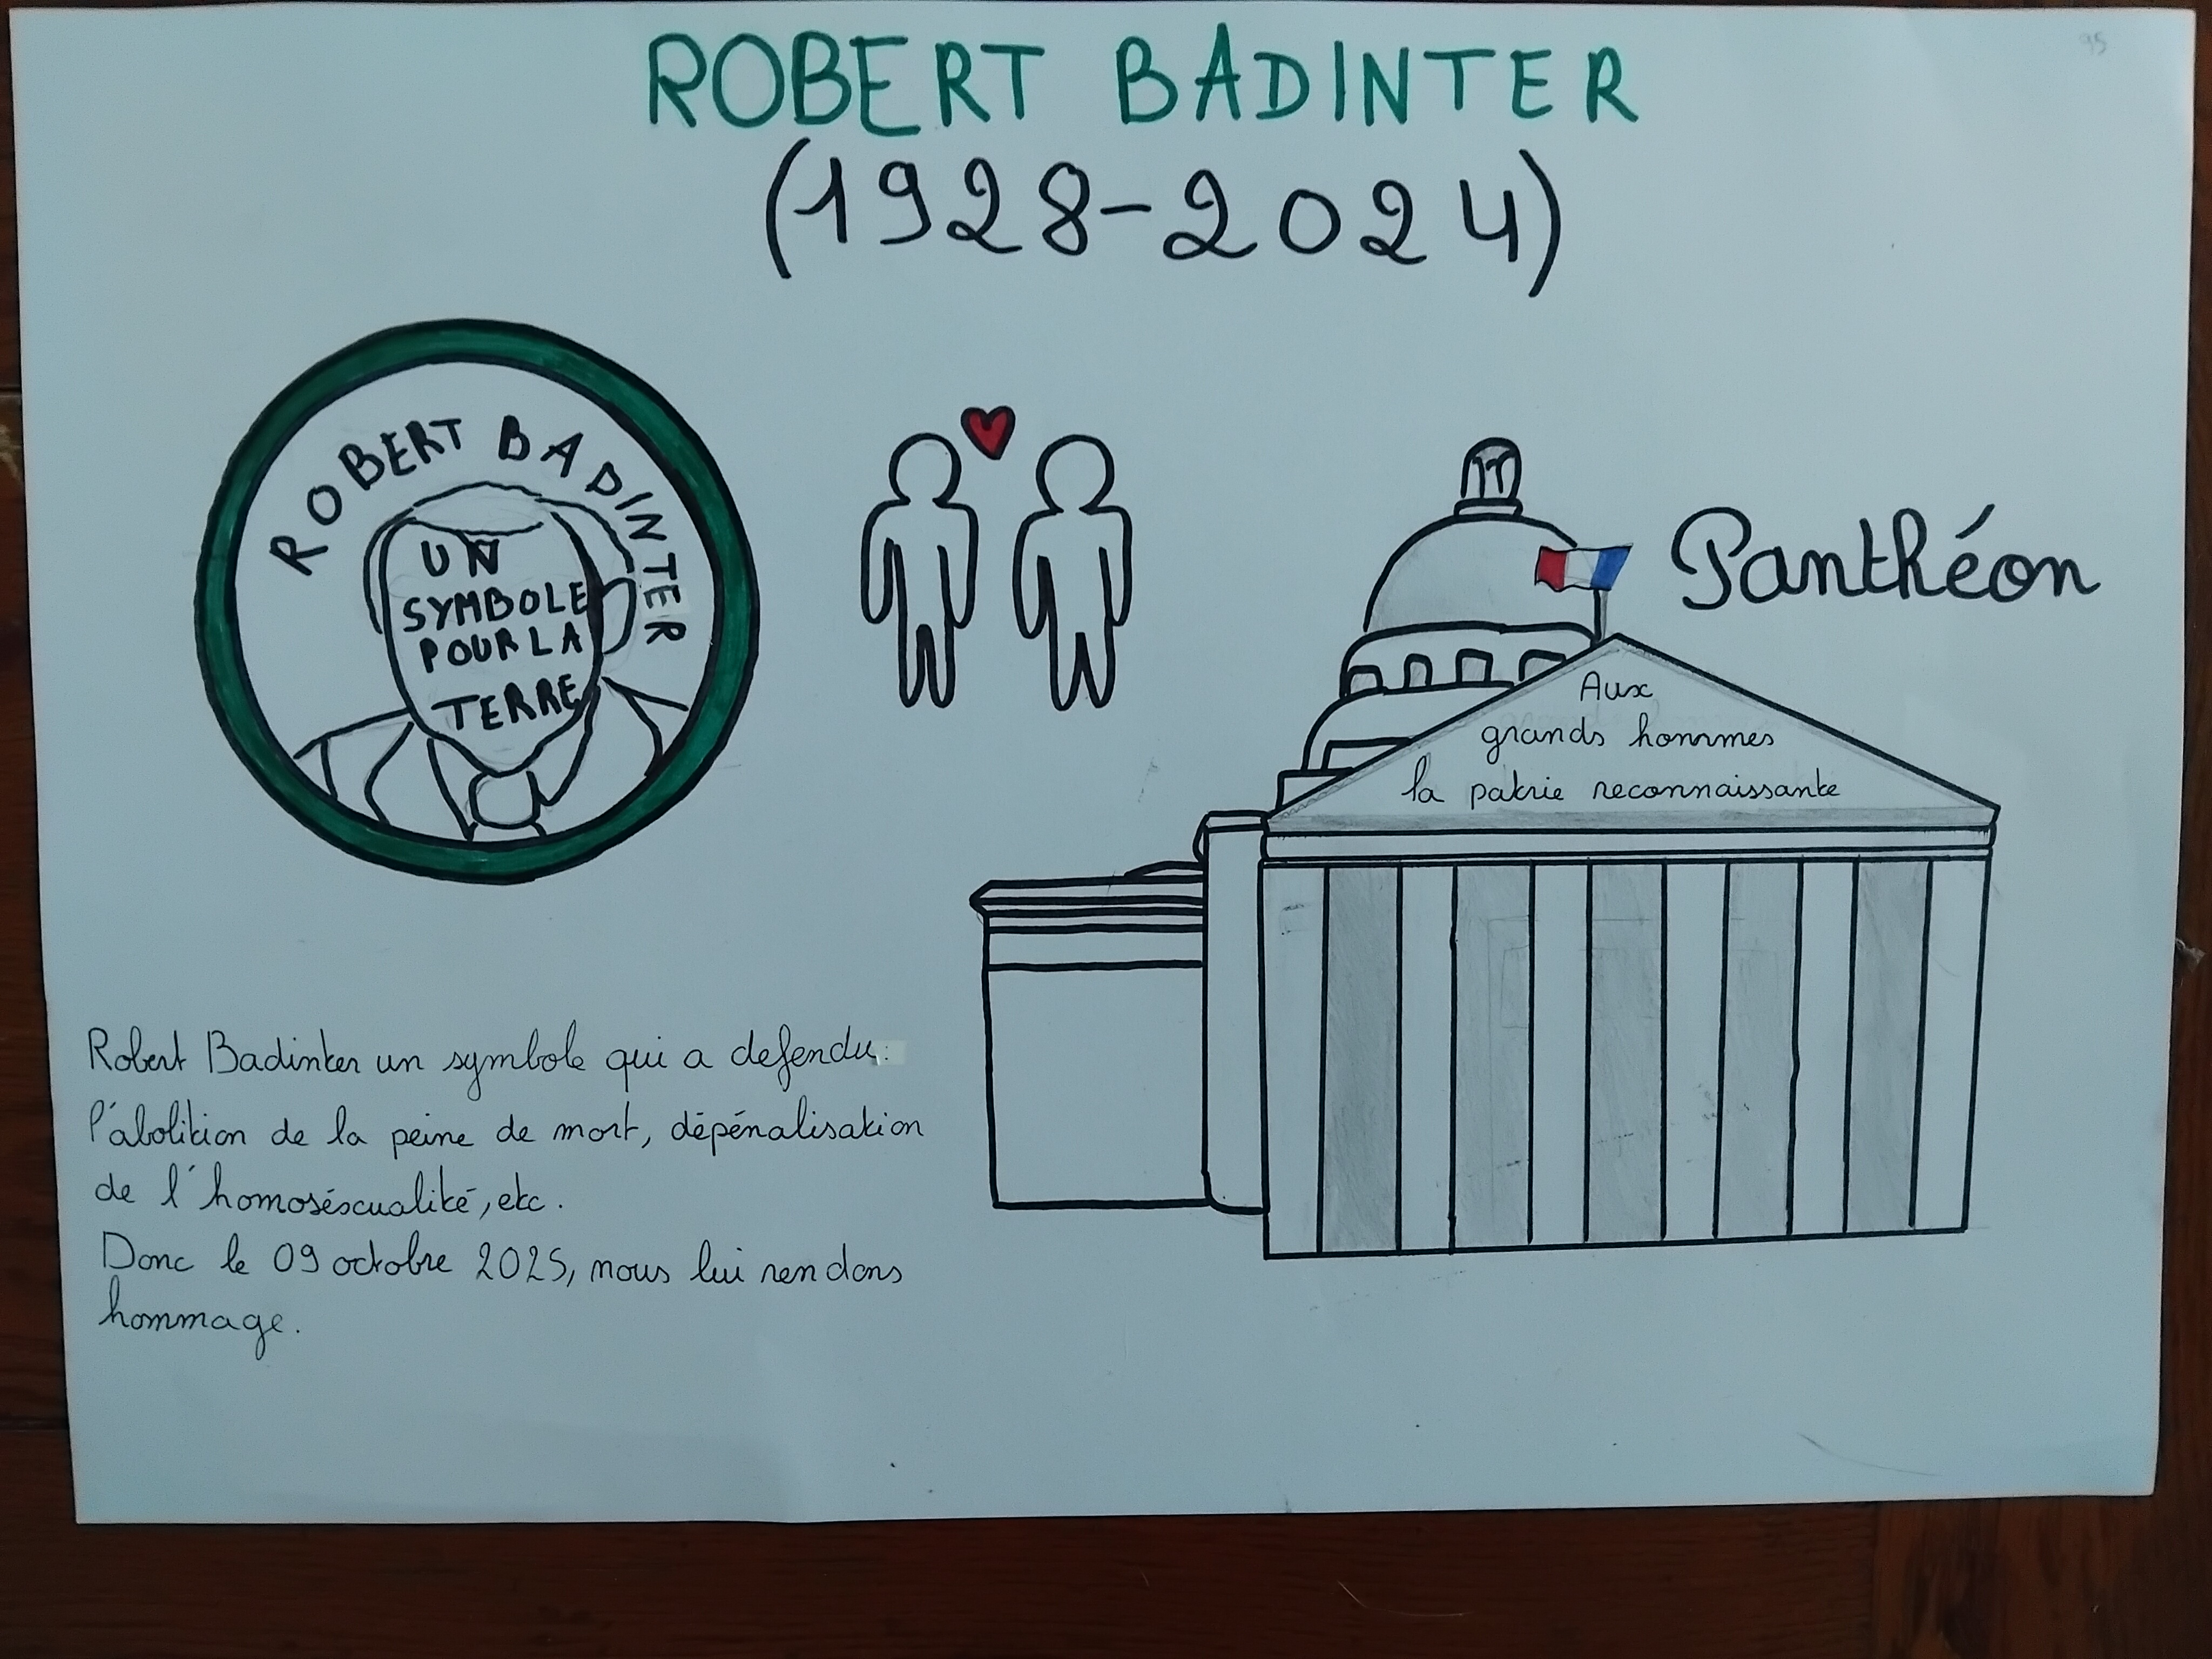 95
ROBERT BADINTER
(1928-2024)
ROBERT BADINTER
UN
SYMBOLE
POUR LA
TERRE
Panthéon
Aux
grands hommes
la patrie reconnaissante
Robert Badinter un symbole qui a defendu:
l'abolition de la peine de mort, dépénalisation
de l'homoséxcualité, etc.
Donc le 09 octobre 2025, nous lui rendons
hommage.